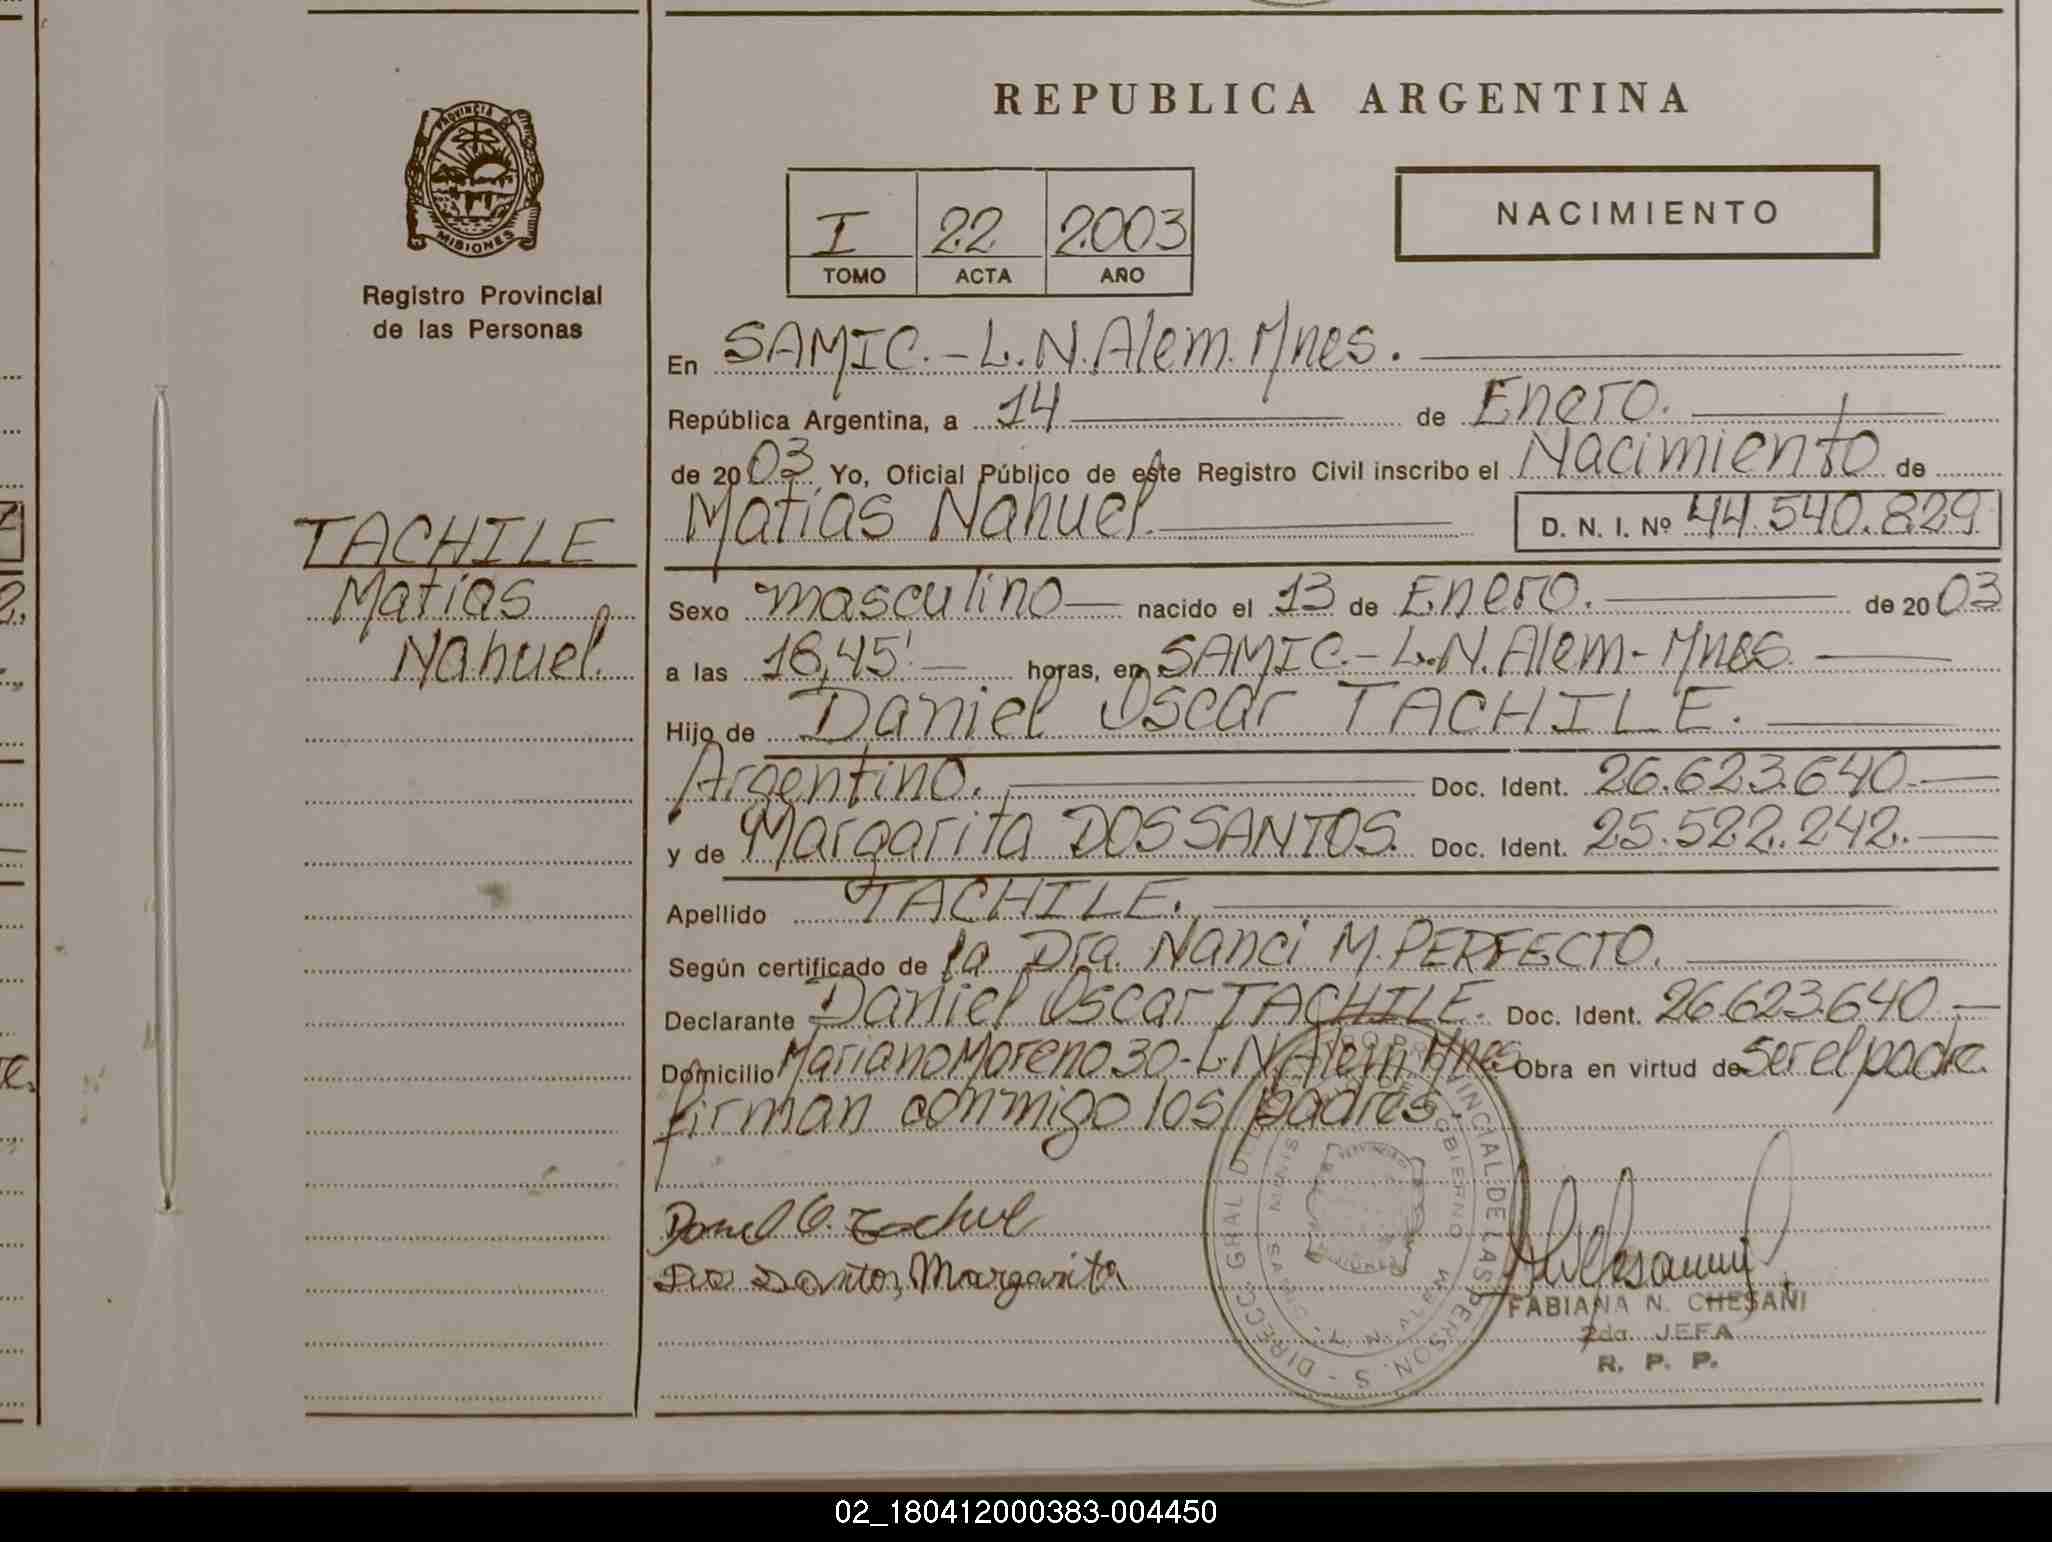 REPUBLICA ARGENTINA
PROVINCIA DE
MISIONES
Registro Provincial
de las Personas
I 22 2003
TOMO ACTA AÑO
NACIMIENTO
En SAMIC.-L.N.Alem.Mnes.
República Argentina, a 14 de Enero.
de 2003 Yo, Oficial Público de este Registro Civil inscribo el Nacimiento de
Matías Nahuel. D. N. I. Nº 44.540.829
TACHILE
Matías
Nahuel.
Sexo masculino nacido el 13 de Enero. de 2003
a las 16,45' horas, en SAMIC.-L.N.Alem-Mnes.
Hijo de Daniel Oscar TACHILE.
Argentino. Doc. Ident. 26.623.640.-
y de Margarita DOS SANTOS. Doc. Ident. 25.522.242.-
Apellido TACHILE.
Según certificado de la Dra. Nanci M. PERFECTO.
Declarante Daniel Oscar TACHILE. Doc. Ident. 26.623.640.-
Domicilio Mariano Moreno 30-L.N.Alem Mnes Obra en virtud de Ser el padre.
firman conmigo los padres.
Dos Santos, Margarita
FABIANA N. CHESANI
2da. JEFA
R. P. P.
02_180412000383-004450